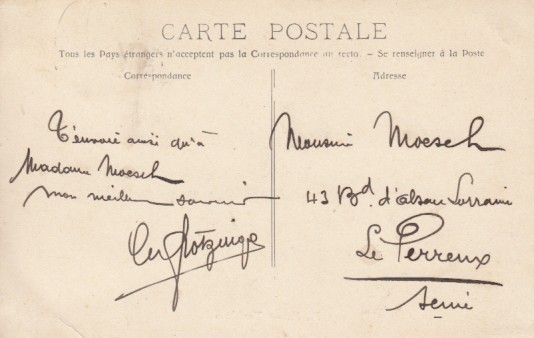 CARTE POSTALE
Tous les Pays étrangers n'acceptent pas la Correspondance au recto. – Se renseigner à la Poste
Correspondance
Adresse
T'envoie ainsi qu'à
Madame Moesch
mon meilleur souvenir
Monsieur Moesch
43 Bd. d'Alsace Lorraine
Le Perreux
Seine